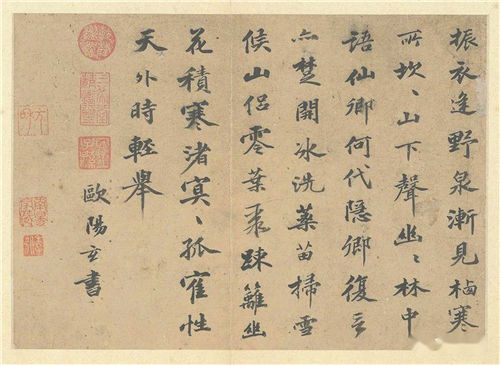 振衣逢野泉漸見栖寒
所坎〻山下聲幽〻林中
語仙卿何代隱卿復言
亦楚開冰洗藥苗掃雪
候山侶零葉聚踈籬幽
花積寒渚冥〻孤隺性
天外時輕舉
歐陽玄書